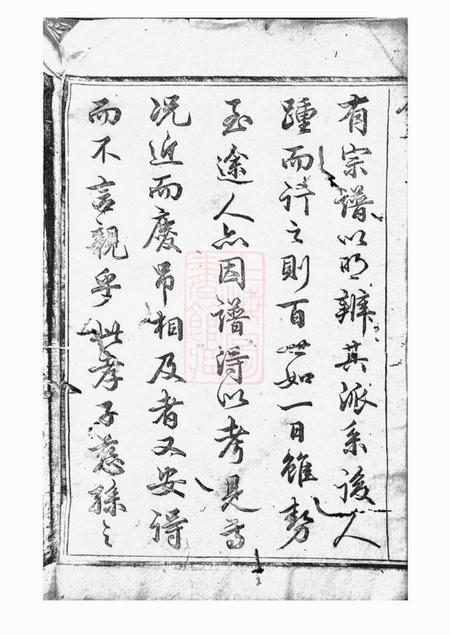 有宗譜以明辨其派系後人
踵而詩之則百世如一日雖勢
至途人亦因譜得以考見焉
况近而慶吊相及者又安得
而不言親乎此孝子慈孫之